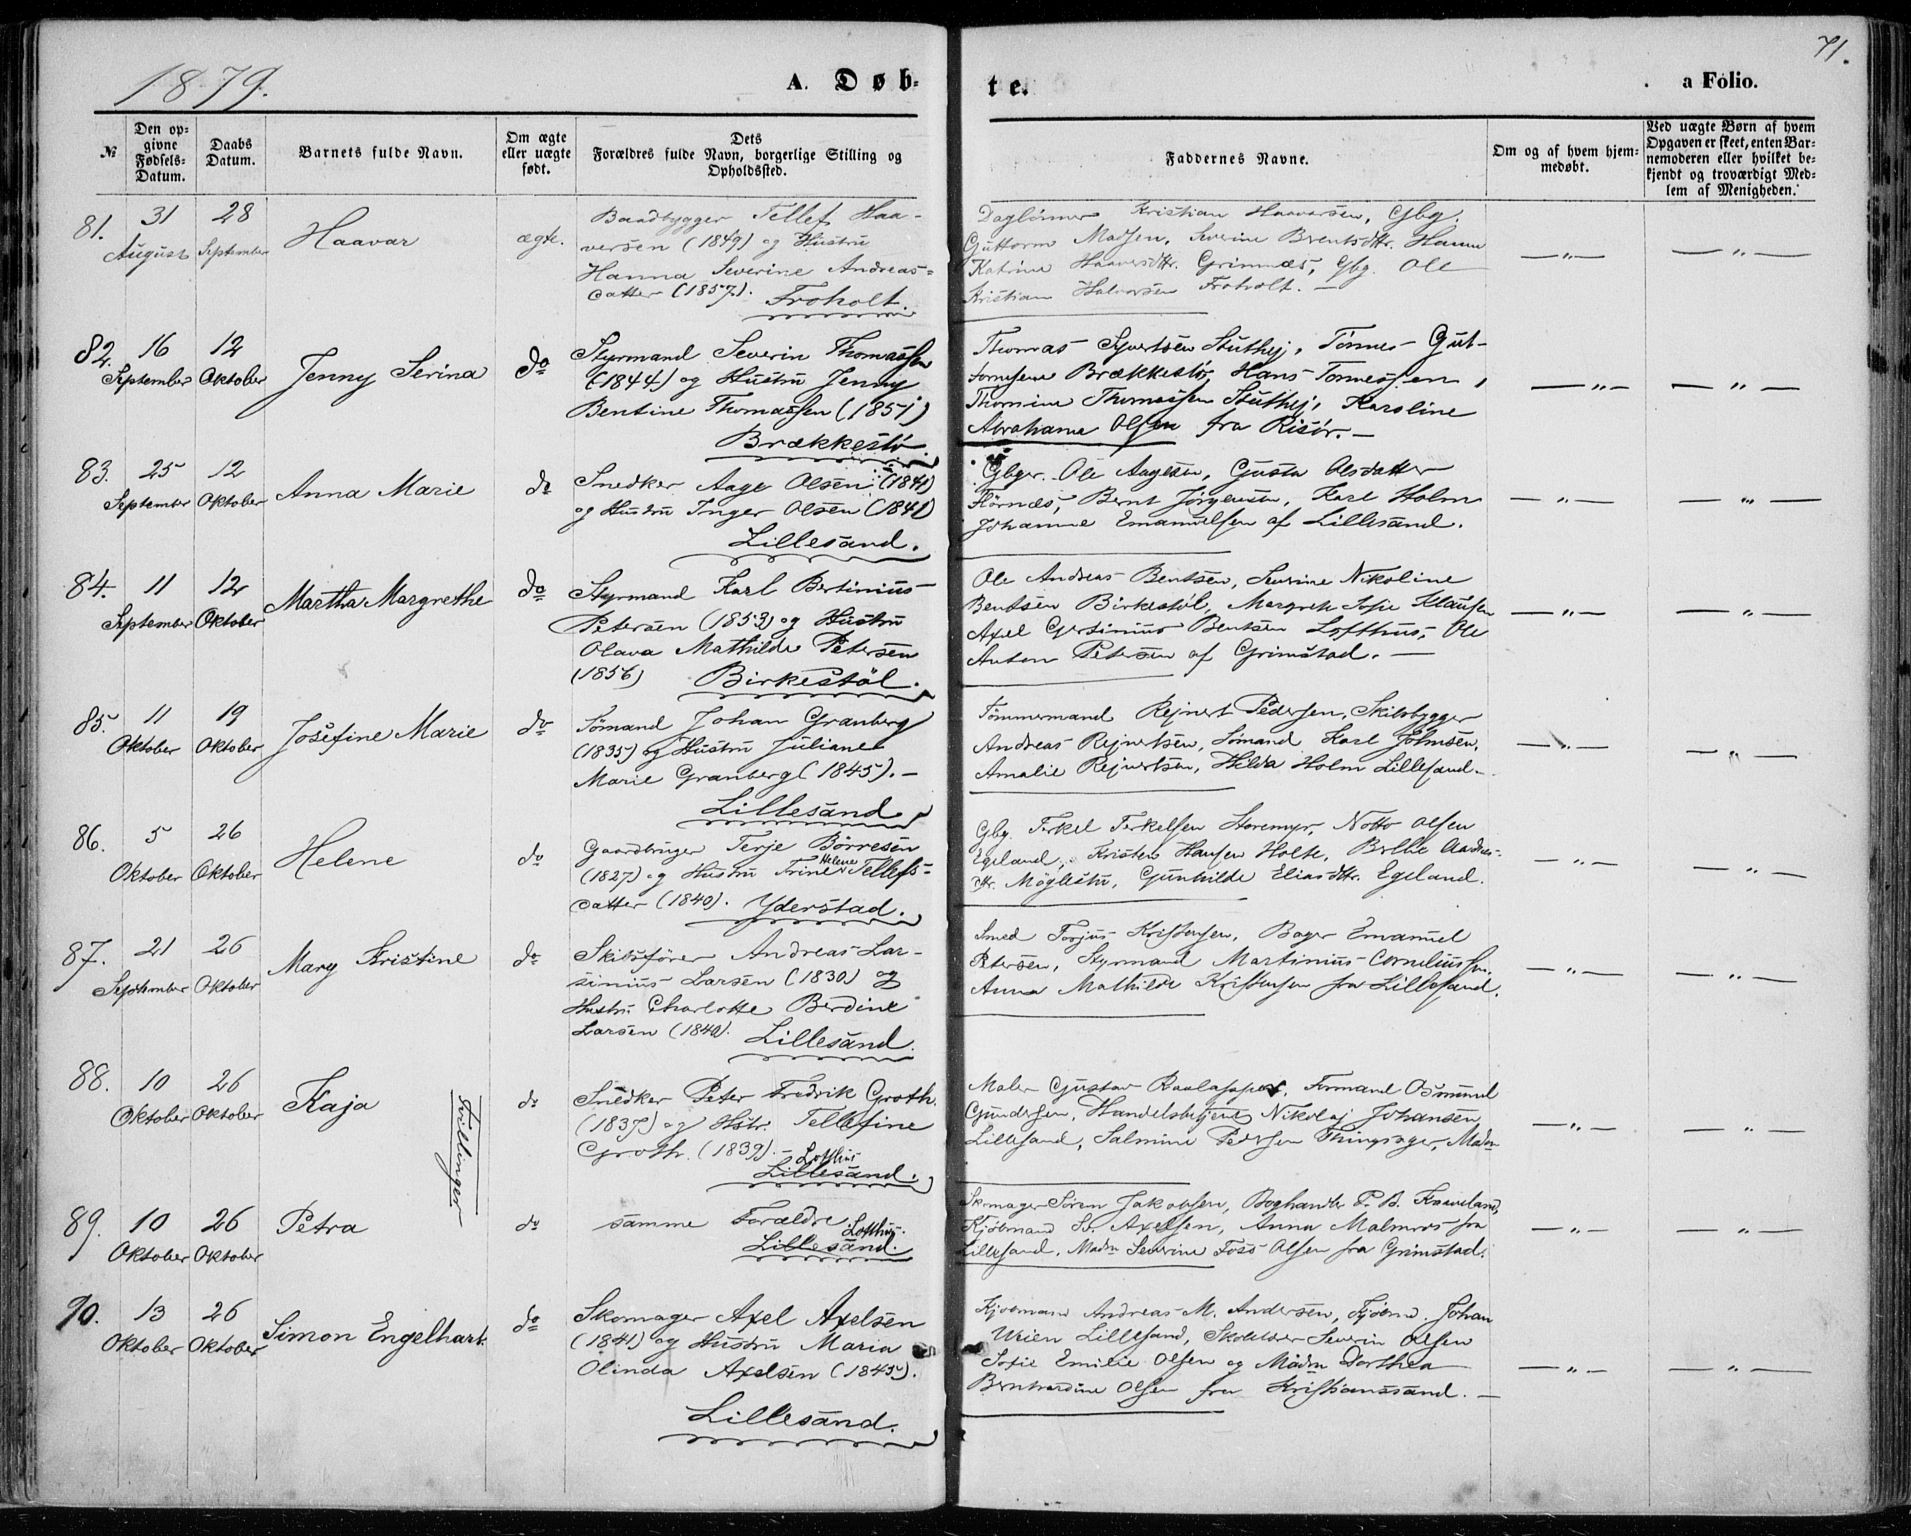 1879.
A. Døb-
te.
a Folio.
71.
№
Den op-
givne
Fødsels-
Datum.
Daabs
Datum.
Barnets fulde Navn.
Om ægte
eller uægte
født.
Dets
Forældres fulde Navn, borgerlige Stilling og
Opholdssted.
Faddernes Navne.
Om og af hvem hjem-
medøbt.
Ved uægte Børn af hvem
Opgaven er skeet, enten Bar-
nemoderen eller hvilket be-
kjendt og troværdigt Med-
lem af Menigheden.
81.
31
August
28
September
Haavar
ægte.
Baadbygger Tellef Haa-
versen (1849) og Hustru
Hanna Severine Andreas-
datter (1857).
Froholt.
Daglønner Kristian Haaversen, Gbg.
Guttorm Madsen, Severine Berntsdtr. Hanne
Katrine Haaversdtr. Grimnæs, Gbg. Ole
Kristian Halvorsen Froholt. —
— " —
— " —
82.
16
September
12
Oktober
Jenny Serina
do
Styrmand Severin Thomassen
(1844) og Hustru Jenny
Bentine Thomassen (1851)
Brækkestø.
Thomas Syvertsen Stuthej, Tønnes Gut-
tormsen Brækkestø, Hans Tønnessen,
Thomine Thomassen Stuthej, Karoline
Abrahama Olsen fra Risør. —
— " —
— " —
83.
25
September
12
Oktober
Anna Marie
do
Snedker Aage Olsen (1841)
og Hustru Inger Olsen (1841)
Lillesand.
Gbgr. Ole Aagesen, Gusta Olsdatter
Hørnæs, Bernt Jørgensen, Karl Holm
Johanne Emanuelsen af Lillesand.
— " —
— " —
84.
11
September
12
Oktober
Martha Margrethe
do
Styrmand Karl Bertinius
Petersen (1853) og Hustru
Olava Mathilde Petersen
(1856)
Birkestöl.
Ole Andreas Bentsen, Severine Nikoline
Bentsen Birkestøl, Margreth Sofie Klausen
Axel Gertinius Bentsen Lofthus, Ole
Anton Petersen af Grimstad. —
— " —
— " —
85.
11
Oktober
19
Oktober
Josefine Marie
do
Sømand Johan Granberg
(1835) og Hustru Juliane
Marie Granberg (1845). —
Lillesand
Tømmermand Rejnert Pedersen, Skibsbygger
Andreas Rejnertsen, Sømand Karl Johnsen,
Amalie Rejnertsen, Hilda Holm Lillesand. —
— " —
— " —
86.
5
Oktober
26
Oktober
Helene
do
Gaardbruger Terje Børresen
(1827) og Hustru Trine Helene Tellefs-
datter (1840). Yderstad.
Gbg. Terkel Terkelsen Storemyr, Notto Olsen
Egeland, Kristen Hansen Holte, Birthe Andreas-
dtr. Møglestu, Gunhilde Eliasdtr. Egeland.
— " —
— " —
87.
21
September
26
Oktober
Mary Kristine
do
Skibsfører Andreas Lar-
sinius Larsen (1830) og
Hustru Charlotte Berdine
Larsen (1840).
Lillesand.
Smed Torjus Kristensen, Bager Emanuel
Petersen, Styrmand Martinius Corneliussen,
Anna Mathilde Kristensen fra Lillesand.
— " —
— " —
88.
10
Oktober
26
Oktober
Kaja
Tvillinger
do
Snedker Peter Fredrik Groth.
(1837) og Hstr. Tellefine
Groth. (1839). — Lofthus
Lillesand.
Maler Gustav, Formand Osmund
Gundersen, Handelsbetjent Nikolaj Johansen
Lillesand, Salmine Pedersen Thingsager, Madm
— " —
— " —
89.
10
Oktober
26
Oktober
Petra
do
samme Forældre
Lofthus.
Lillesand.
Skomager Søren Jakobsen, Boghandler P. B.
Kjøbmand Axelsen, Anna Malmros fra
Lillesand, Madm Severine Foss Olsen fra Grimstad.
— " —
— " —
90.
13
Oktober
26
Oktober
Simon Engelhart.
do
Skomager Axel Axelsen
(1841) og Hustru Maria
Olinda Axelsen (1845).
Lillesand.
Kjøbmand Andreas M. Andersen, Kjøbmd. Johan
Weien Lillesand, Severin Olsen
Sofie Emilie Olsen og Madm Dorthea
Bernhardine Olsen fra Kristianssand. —
— " —
— " —